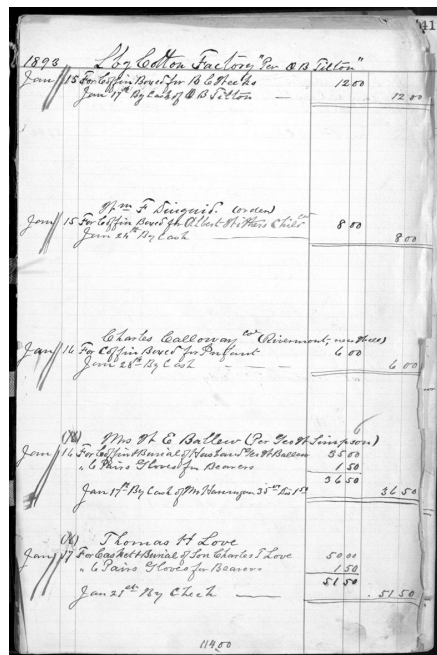 41
1893 Lbg Cotton Factory "Per O B Tilton"
Jan 15 For Coffin Boxed for B C Meeks 12 00
Jan 17th By Cash of O B Tilton — 12 00
Wm F Dinguid. (order)
Jan 15 For Coffin Boxed for Albert Withers Child col 8 00
Jan 24th By Cash — 8 00
Charles Calloway col (Rivermont, near
Jan 16 For Coffin Boxed for Infant 6 00
Jan 28th By Cash — 6 00
Mrs W E Ballew (Per Geo W Simpson)
Jan 16 For Coffin & Burial of Husband Geo W Ballew 35 00
" 6 Pairs Gloves for Bearers 1 50
36 50
Jan 17th By Cash of Mr 35 00 Dis 1 50 36 50
Thomas H Love
Jan 17 For Casket & Burial of Son Charles T Love 50 00
" 6 Pairs Gloves for Bearers 1 50
51 50
Jan 21st By Check — 51 50
114.00